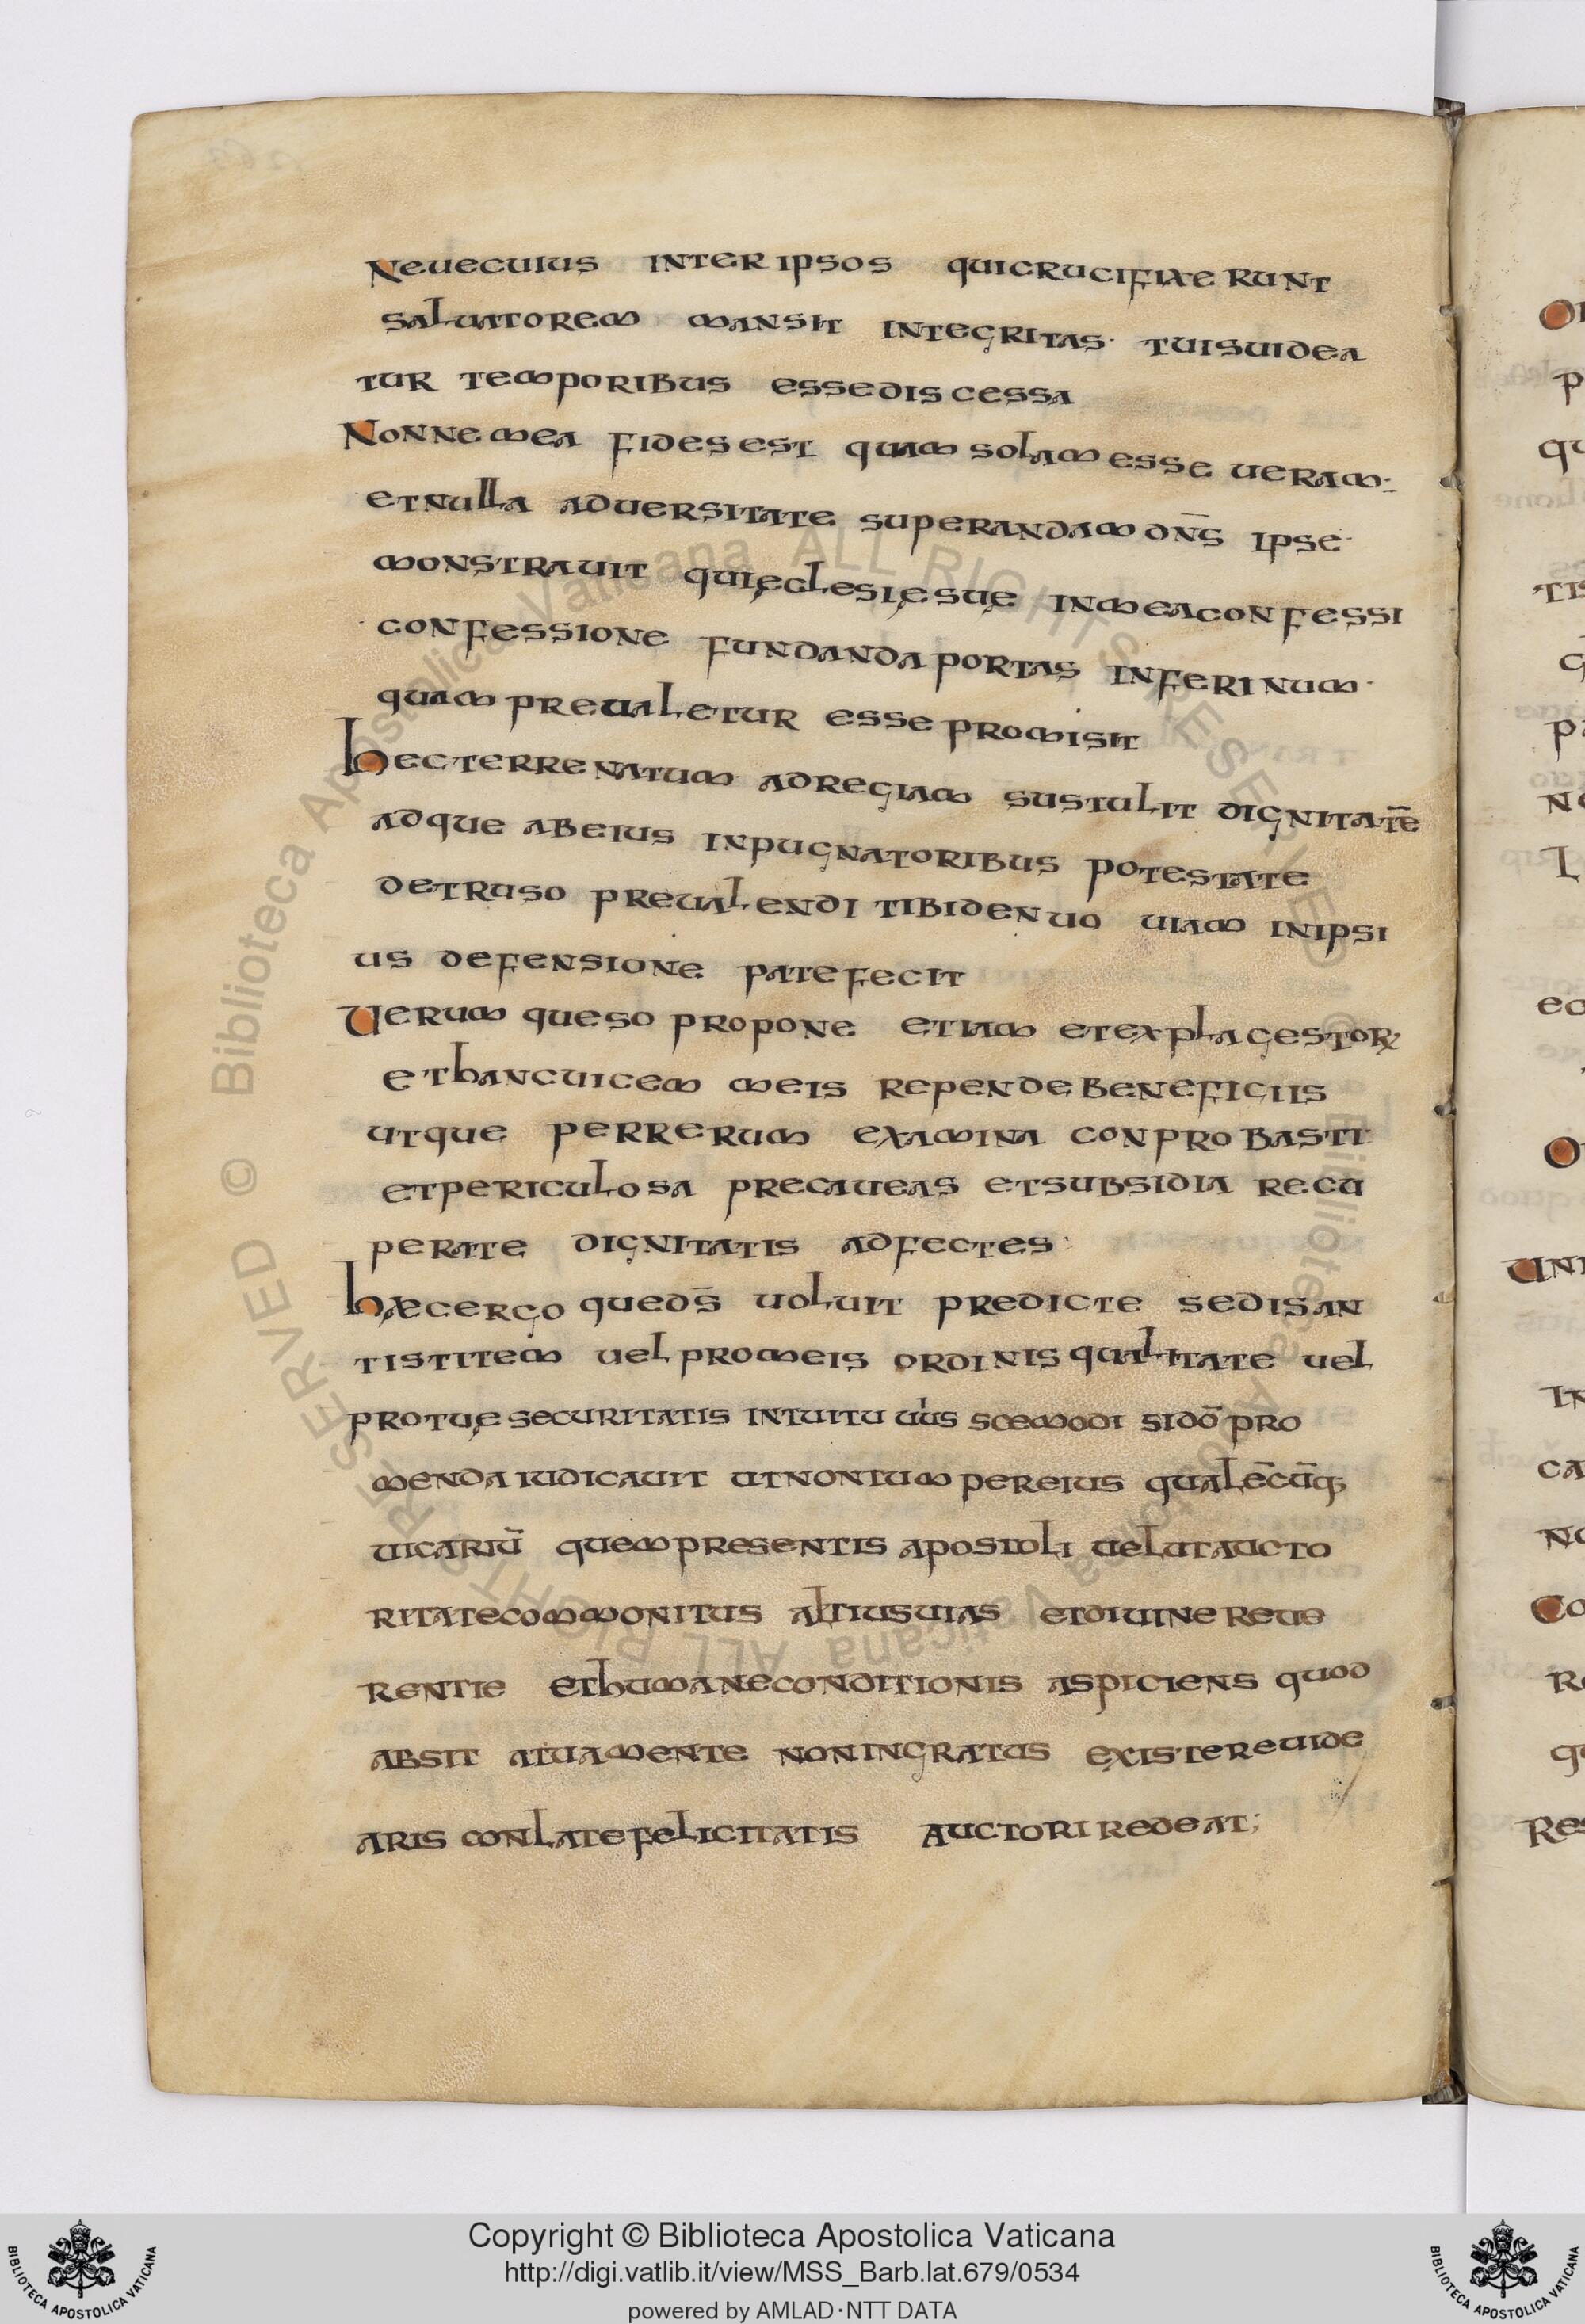 Neuecuius inter ipsos quicrucifixerunt
saluatorem mansit integritas· tuisuidea
tur temporibus essediscessa
Nonne mea fides est quam solam esse ueram·
etnulla aduersitate superandam dn̄s ipse·
monstrauit quięclesięsuę inmeaconfessi
confessione fundanda portas inferi num·
quam preualetur esse promisit
hecterrenatum adregiam sustulit dignitatē
adque abeius inpugnatoribus potestate
detruso preualendi tibidenuo uiam inipsi
us defensione patefecit
Uerum queso propone etiam etexplagestorꝝ
ethancuicem meis repende beneficiis
utque perrerum examina conprobasti
etpericulosa precaueas etsubsidia recu
perate dignitatis adfectes·
hæcergo queds̄ uoluit predicte sedisan
tistitem uel promeis ordinis qualitate uel
protuę securitatis intuitu scemodi sidō pro
menda iudicauit utnontum pereius qualēcūq;
uicariū quempresentis apostoli uelutaucto
ritatecommonitus altiusuias etdiuinereue
rentie ethumaneconditionis aspiciens quod
absit atuamente noningratus existereuide
aris conlatefelicitatis auctori redeat;
Copyright © Biblioteca Apostolica Vaticana
http://digi.vatlib.it/view/MSS_Barb.lat.679/0534
powered by AMLAD·NTT DATA